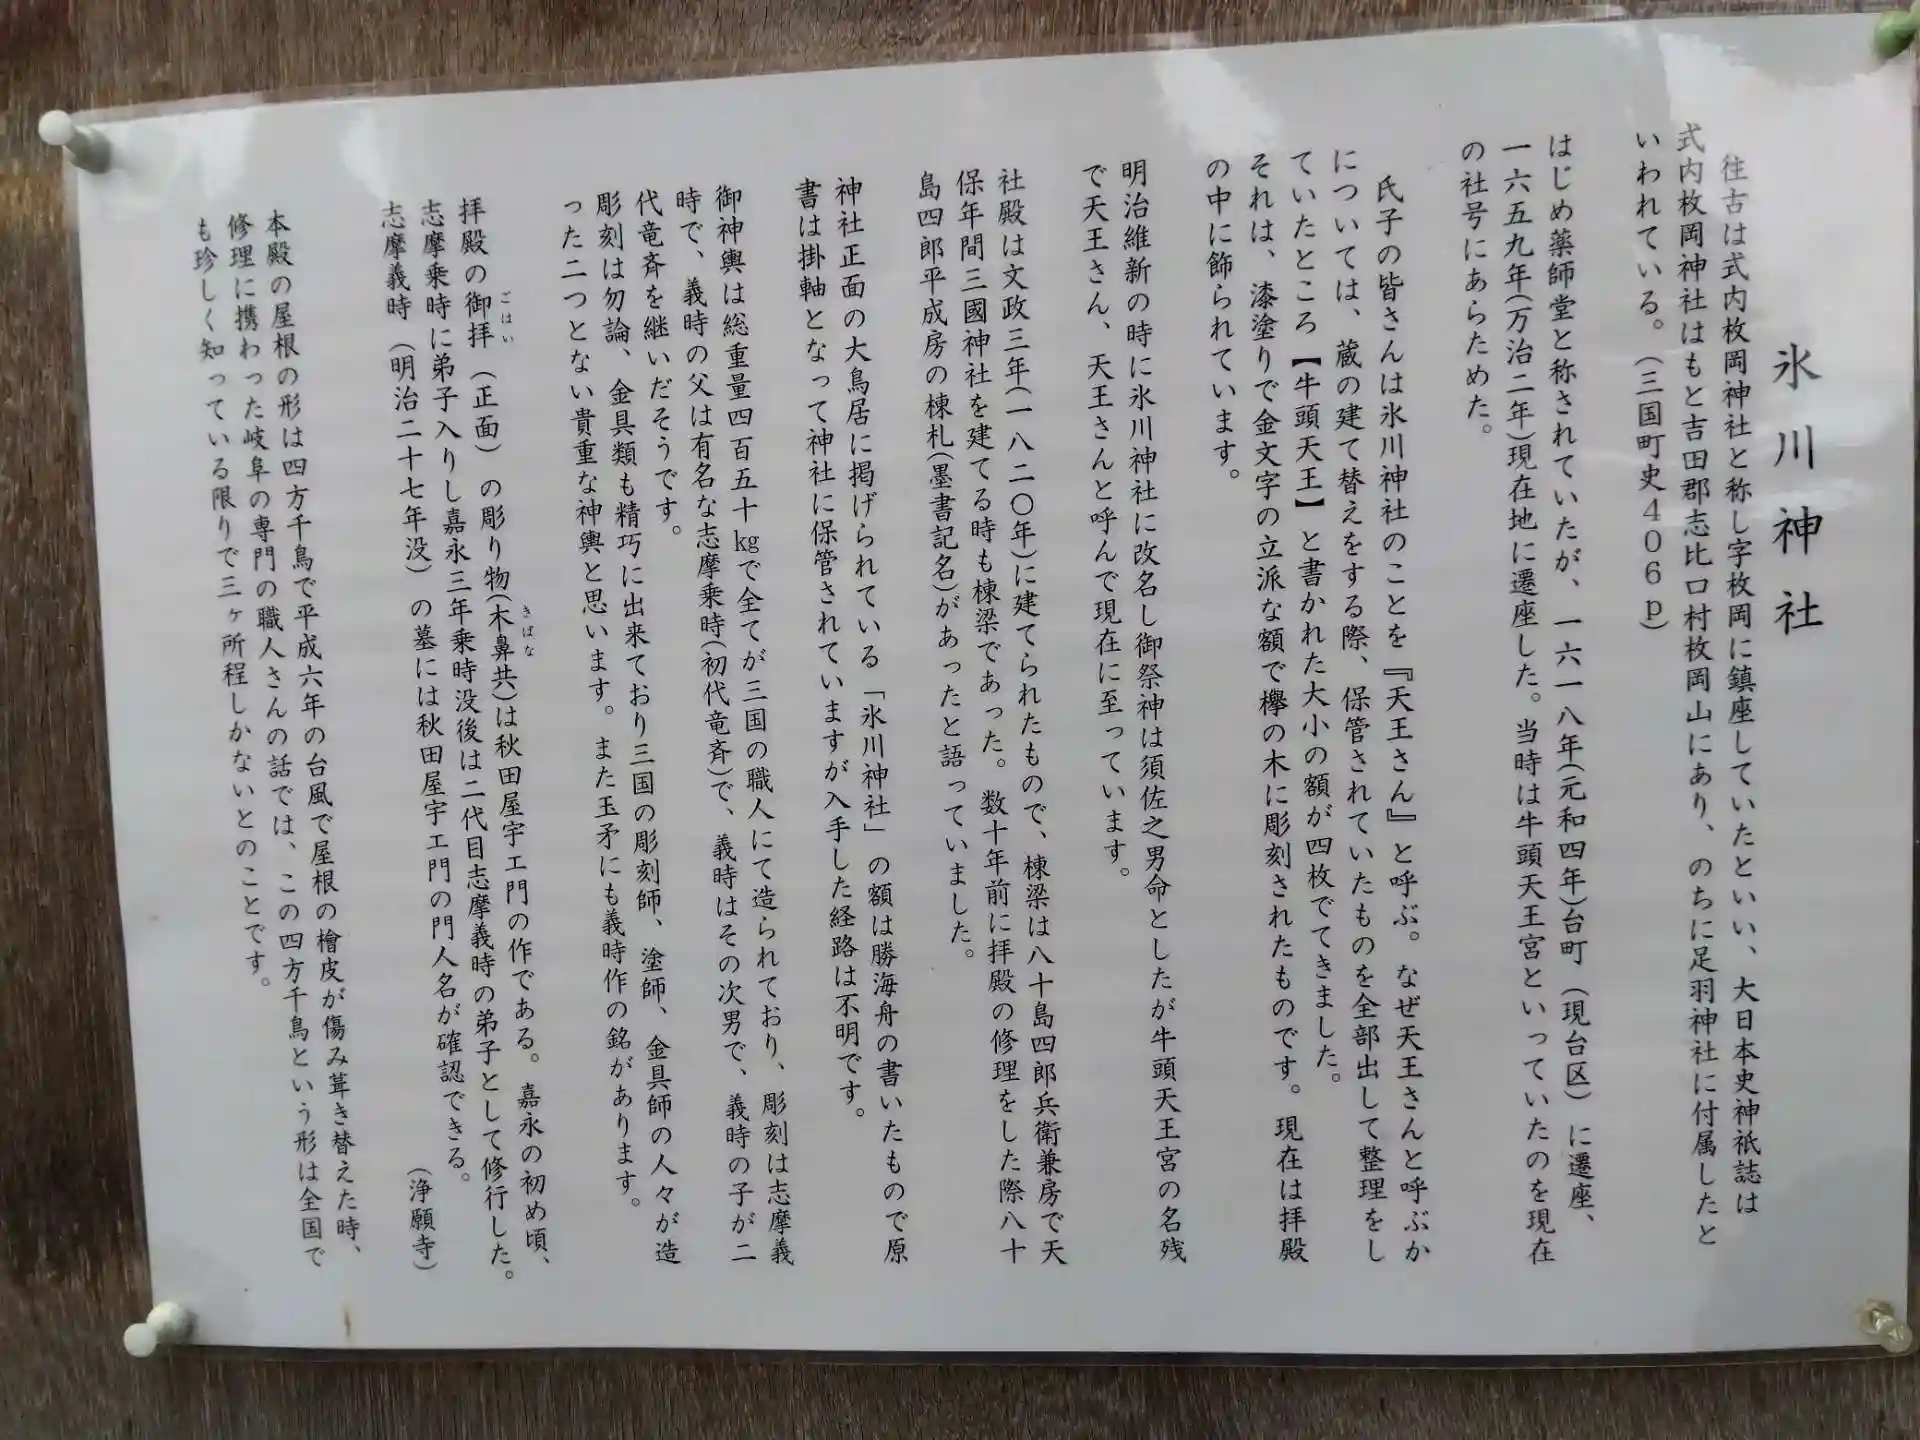 氷川神社
往古は式内枚岡神社と称し字枚岡に鎮座していたといい、大日本史神祇誌は
式内枚岡神社はもと吉田郡志比口村枚岡山にあり、のちに足羽神社に付属したと
いわれている。(三国町史４０６ｐ)
はじめ薬師堂と称されていたが、一六一八年(元和四年)台町（現台区）に遷座、
一六五九年(万治二年)現在地に遷座した。当時は牛頭天王宮といっていたのを現在
の社号にあらためた。
氏子の皆さんは氷川神社のことを『天王さん』と呼ぶ。なぜ天王さんと呼ぶか
については、蔵の建て替えをする際、保管されていたものを全部出して整理をし
ていたところ【牛頭天王】と書かれた大小の額が四枚でてきました。
それは、漆塗りで金文字の立派な額で欅の木に彫刻されたものです。現在は拝殿
の中に飾られています。
明治維新の時に氷川神社に改名し御祭神は須佐之男命としたが牛頭天王宮の名残
で天王さん、天王さんと呼んで現在に至っています。
社殿は文政三年(一八二〇年)に建てられたもので、棟梁は八十島四郎兵衛兼房で天
保年間三國神社を建てる時も棟梁であった。数十年前に拝殿の修理をした際八十
島四郎平成房の棟札(墨書記名)があったと語っていました。
神社正面の大鳥居に掲げられている「氷川神社」の額は勝海舟の書いたもので原
書は掛軸となって神社に保管されていますが入手した経路は不明です。
御神輿は総重量四百五十㎏で全てが三国の職人にて造られており、彫刻は志摩義
時で、義時の父は有名な志摩乗時(初代竜斉)で、義時はその次男で、義時の子が二
代竜斉を継いだそうです。
彫刻は勿論、金具類も精巧に出来ており三国の彫刻師、塗師、金具師の人々が造
った二つとない貴重な神輿と思います。また玉矛にも義時作の銘があります。
拝殿の御拝（正面）の彫り物(木鼻共)は秋田屋宇エ門の作である。嘉永の初め頃、
ごはい
きばな
志摩乗時に弟子入りし嘉永三年乗時没後は二代目志摩義時の弟子として修行した。
志摩義時（明治二十七年没）の墓には秋田屋宇エ門の門人名が確認できる。
(浄願寺)
本殿の屋根の形は四方千鳥で平成六年の台風で屋根の檜皮が傷み葺き替えた時、
修理に携わった岐阜の専門の職人さんの話では、この四方千鳥という形は全国で
も珍しく知っている限りで三ヶ所程しかないとのことです。